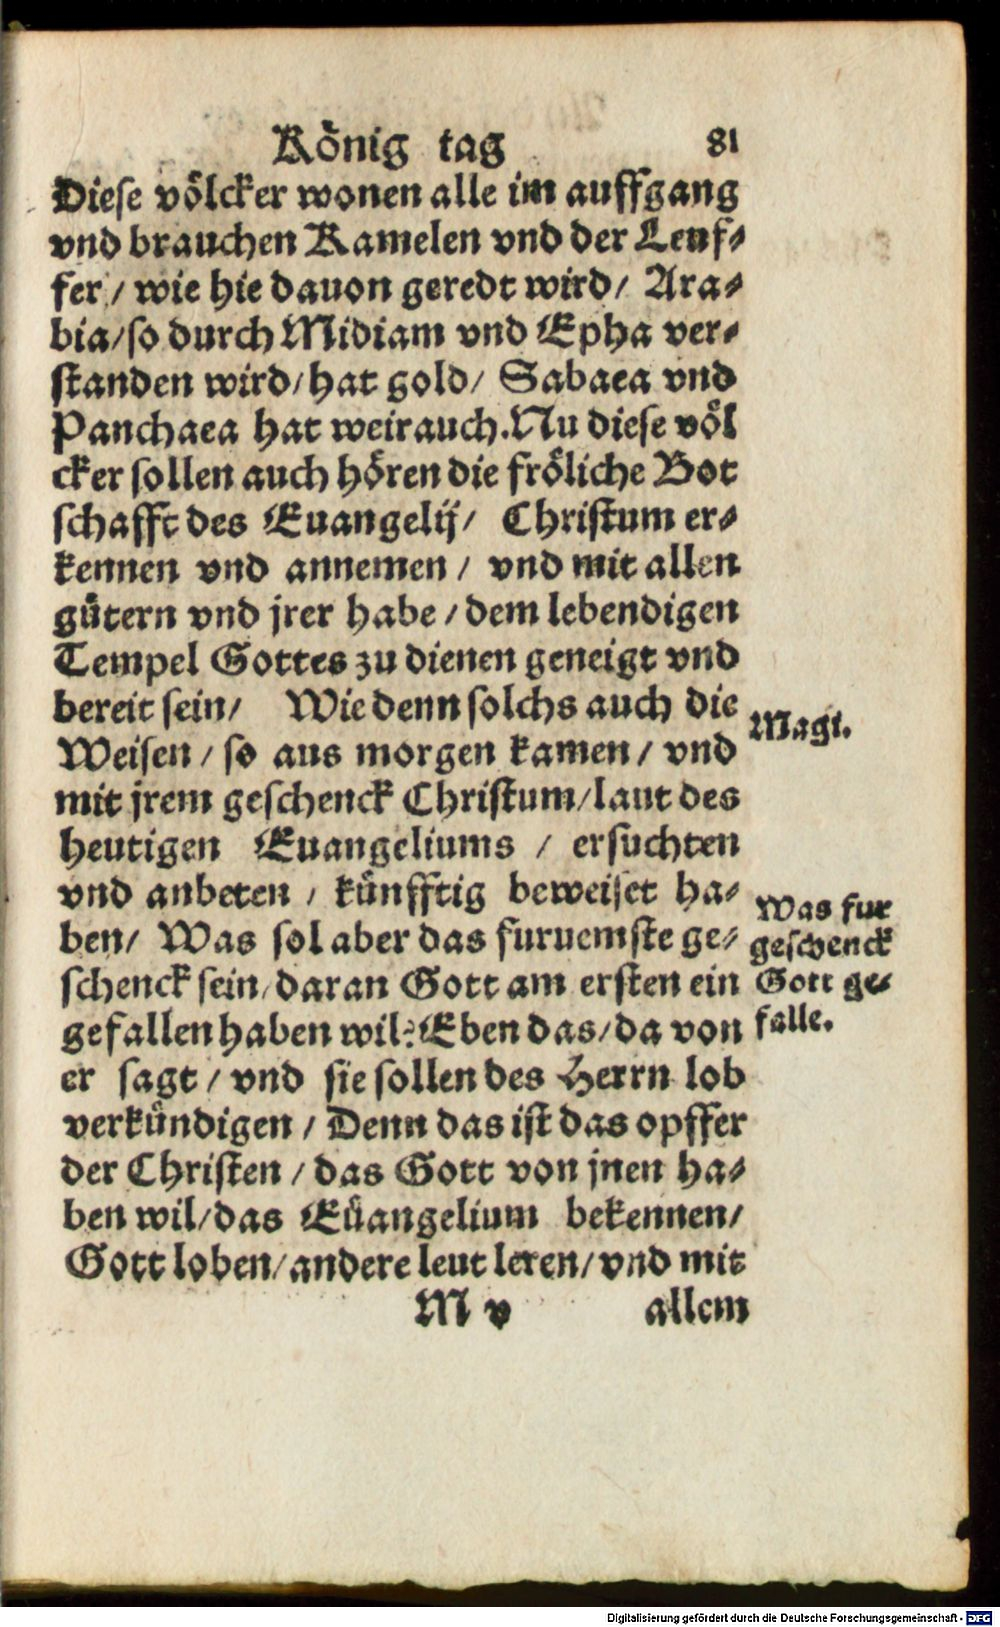 König tag 81
Diese völcker wonen alle im auffgang
vnd brauchen Kamelen vnd der Leuf⸗
fer / wie hie dauon geredt wird / Ara⸗
bia / so durch Midiam vnd Epha ver⸗
standen wird / hat gold / Sabaea vnd
Panchaea hat weirauch. Nu diese völ
cker sollen auch hören die fröliche Bot
schafft des Euangelij / Christum er⸗
kennen vnd annemen / vnd mit allen
gütern vnd jrer habe / dem lebendigen
Tempel Gottes zu dienen geneigt vnd
bereit sein / Wie denn solchs auch die
Magi.
Weisen / so aus morgen kamen / vnd
mit jrem geschenck Christum / laut des
heutigen Euangeliums / ersuchten
vnd anbeten / künfftig beweiset ha⸗
ben / Was sol aber das furnemste ge⸗
schenck sein / daran Gott am ersten ein
gefallen haben wil? Eben das / da von
Was fur
geschenck
Gott ge⸗
falle.
er sagt / vnd sie sollen des Herrn lob
verkündigen / Denn das ist das opffer
der Christen / das Gott von jnen ha⸗
ben wil / das Eüangelium bekennen /
Gott loben / andere leut leren / vnd mit
M v allem
Digitalisierung gefördert durch die Deutsche Forschungsgemeinschaft - DFG